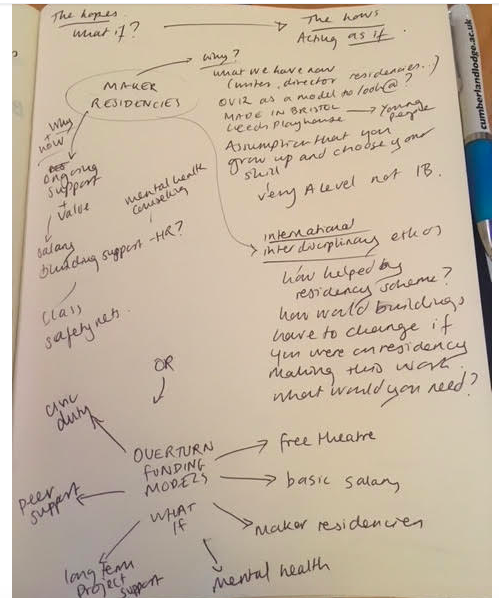 The hopes
what if?
The hows
Acting as if.
MAKER
RESIDENCIES
why?
what we have now
(writer, director residencies..)
OVIZ as a model to look@?
MADE IN BRISTOL
Leeds Playhouse
Young
people
Assumption that you
grow up and choose your
skill
very A level not IB.
why
+
how
ongoing
support
+
value
mental health
counseling
salary
building support - HR?
class
safety nets.
international
interdisciplinary ethos
how helped by
residency scheme?
how would buildings
have to change if
you were on residency
making this work.
what would you need?
OR
OVERTURN
FUNDING
MODELS
WHAT
IF
civic
duty
peer
support
long term
project
support
free theatre
basic salary
maker residencies
mental health
cumberlandlodge.ac.uk